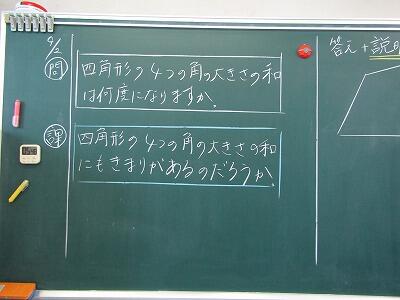 9/2
問
四角形の4つの角の大きさの和
は何度になりますか。
課
四角形の4つの角の大きさの和
にもきまりがあるのだろうか。
答え+説